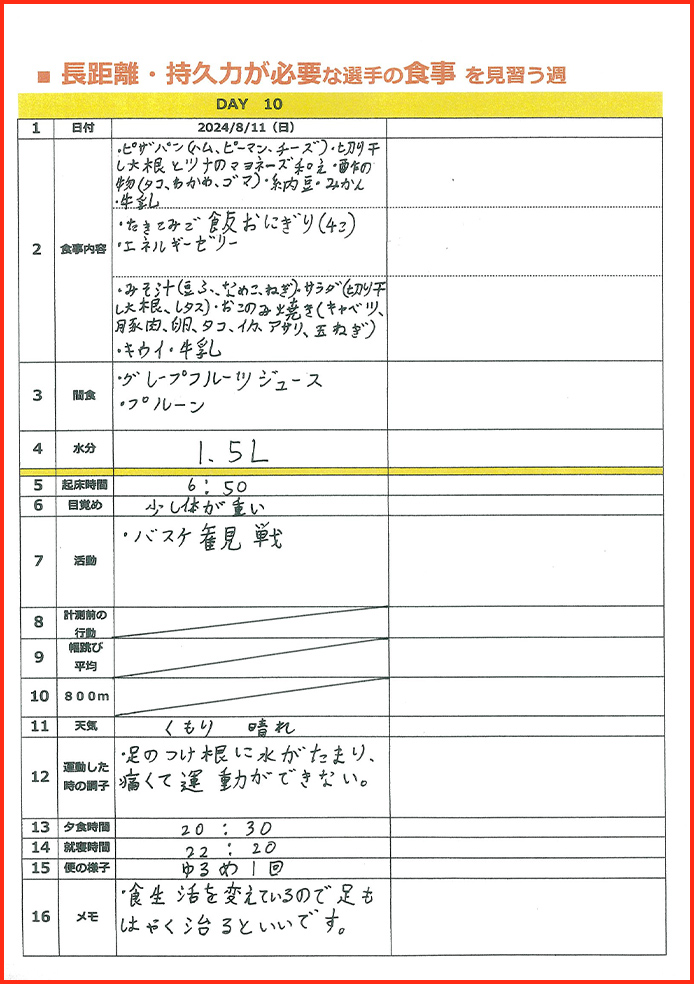 ■ 長距離・持久力が必要な選手の食事 を見習う週
DAY 10
1 日付 2024/8/11（日）
2 食事内容
・ピザパン(ハム、ピーマン、チーズ)・切り干
し大根とツナのマヨネーズ和え・酢の
物(タコ、わかめ、ゴマ)・納豆・みかん
・牛乳
・たきこみご飯おにぎり(4こ)
・エネルギーゼリー
・みそ汁(豆ふ、なめこ、ねぎ)・サラダ(切り干
し大根、レタス)・おこのみ焼き(キャベツ、
豚肉、卵、タコ、イカ、アサリ、玉ねぎ)
・キウイ・牛乳
3 間食
・グレープフルーツジュース
・プルーン
4 水分 1.5L
5 起床時間 6:50
6 目覚め 少し体が重い
7 活動 ・バスケ観戦
8 計測前の
行動
9 幅跳び
平均
10 800m
11 天気 くもり 晴れ
12 運動した
時の調子
・足のつけ根に水がたまり、
痛くて運動ができない。
13 夕食時間 20:30
14 就寝時間 22:20
15 便の様子 ゆるめ1回
16 メモ
・食生活を変えているので足も
はやく治るといいです。